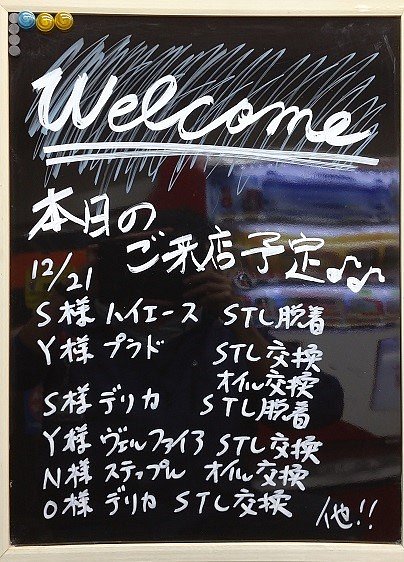 Welcome
本日の
ご来店予定♪♪
12/21
S様 ハイエース STL脱着
Y様 プラド STL交換
オイル交換
S様 デリカ STL脱着
Y様 ヴェルファイア STL交換
N様 ステップル オイル交換
O様 デリカ STL交換
他!!